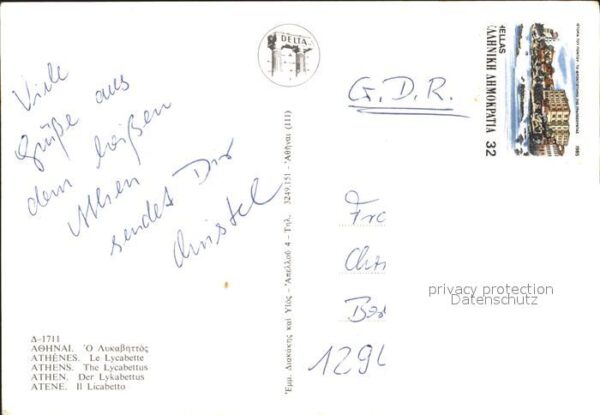 Viele
Grüße aus
dem heißen
Athen
sendet Dir
Christel
Δ-1711
ΑΘΗΝΑΙ. Ὁ Λυκαβηττός
ATHÈNES. Le Lycabette
ATHENS. The Lycabettus
ATHEN. Der Lykabettus
ATENE. Il Licabetto
Ἐμμ. Διακάκης καὶ Υἱός - Ἀπελλοῦ 4 - Τηλ. 3249.151 - Ἀθῆναι (111)
DELTA
G.D.R.
HELLAS
ΕΛΛΗΝΙΚΗ ΔΗΜΟΚΡΑΤΙΑ 32
1985
Fr
Ch
B
129
privacy protection
Datenschutz